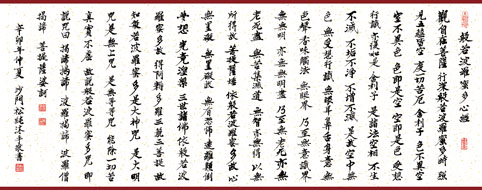 般若波羅蜜多心經
觀自在菩薩 行深般若波羅蜜多時 照
見五蘊皆空 度一切苦厄 舍利子 色不異空
空不異色 色即是空 空即是色 受想
行識 亦復如是 舍利子 是諸法空相 不生
不滅 不垢不淨 不增不減 是故空中無
色 無受想行識 無眼耳鼻舌身意 無
色聲香味觸法 無眼界 乃至無意識界
無無明 亦無無明盡 乃至無老死 亦無
老死盡 無苦集滅道 無智亦無得 以無
所得故 菩提薩埵 依般若波羅蜜多故 心
無罣礙 無罣礙故 無有恐怖 遠離顛倒
夢想 究竟涅槃 三世諸佛 依般若波
羅蜜多故 得阿耨多羅三藐三菩提 故
知般若波羅蜜多 是大神咒 是大明
咒 是無上咒 是無等等咒 能除一切苦
真實不虛 故說般若波羅蜜多咒 即
說咒曰 揭諦揭諦 波羅揭諦 波羅僧
揭諦 菩提薩婆訶
辛卯年仲夏 沙門 沐手敬書